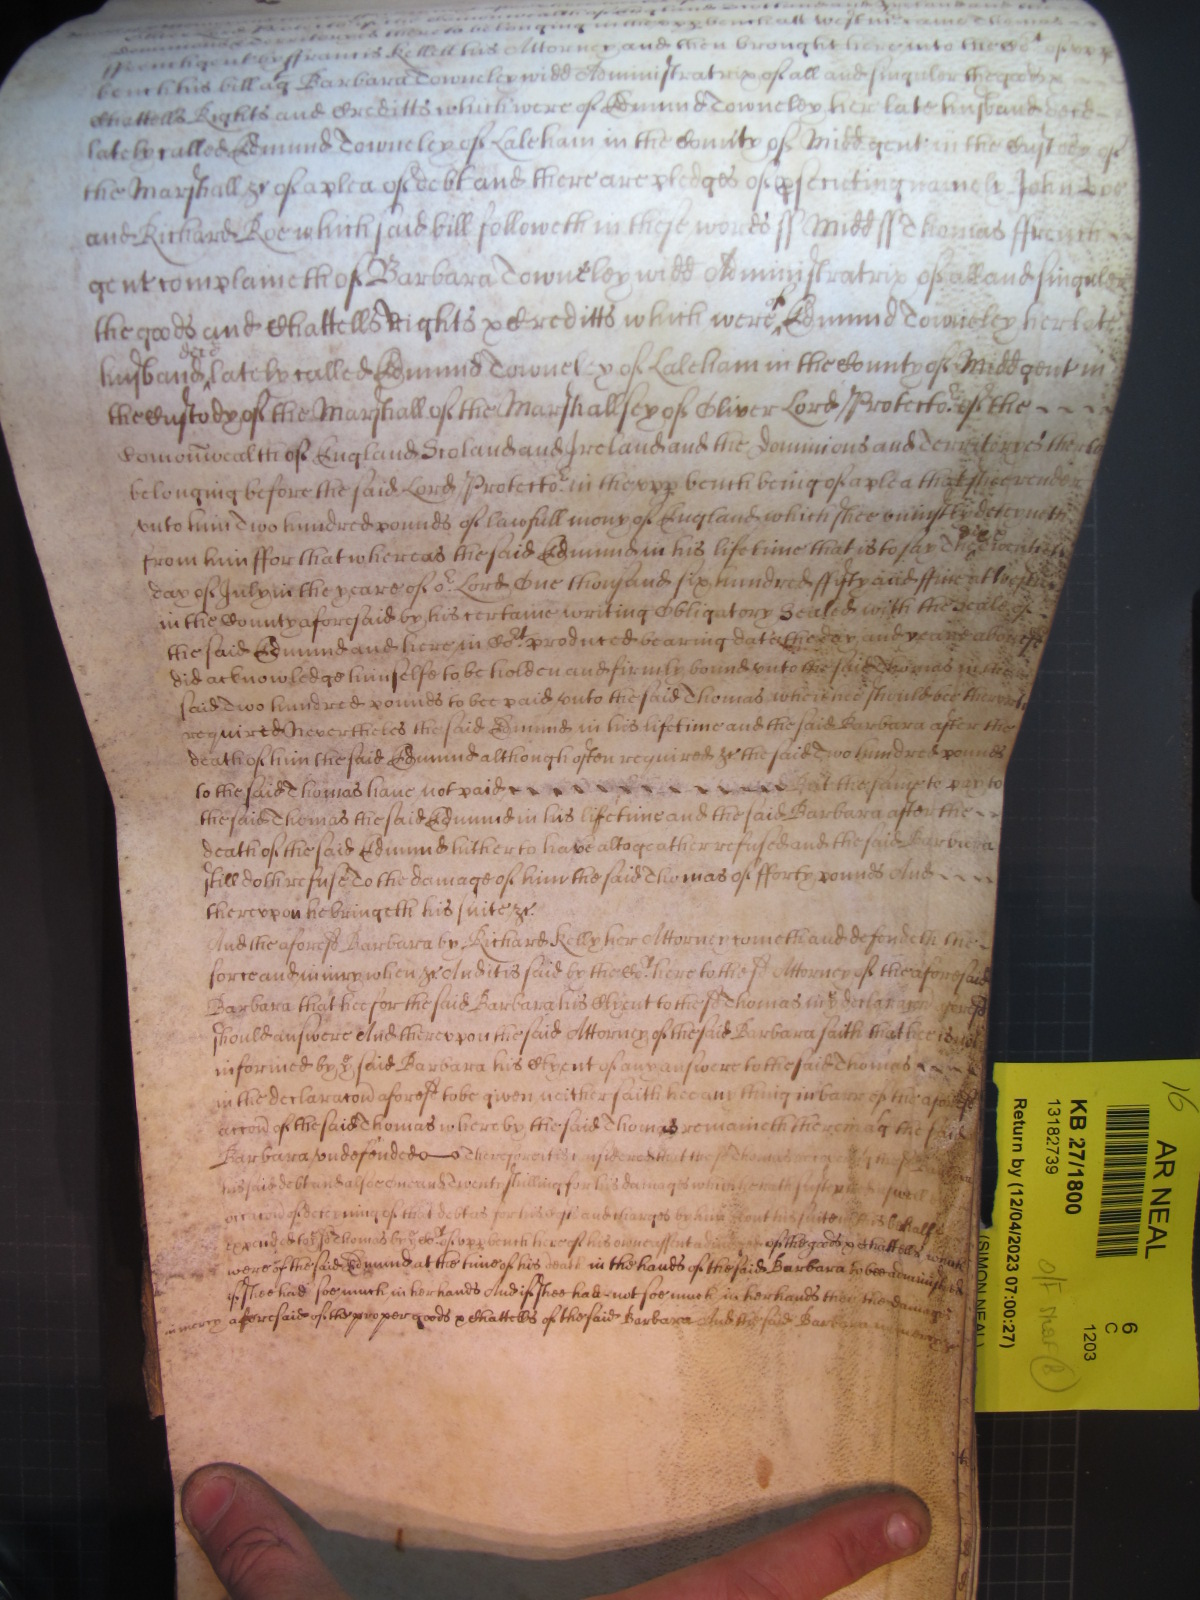 dominions & Territoryes there to belonging in the upp bench att Westm came Thomas
ffrench gent by ffrancis Kellett his Attorney and then brought here into the Cot of upp
bench his bill ag Barbara Towneley widd Administratrix of all and singuler the goods
Chattells Rights and Creditts which were of Edmund Towneley her late husband decd
lately called Edmund Towneley of Laleham in the County of Midd gent in the Custody of
the Marshall &c of a plea of debt and there are pledges of psecuting namely John Doe
and Richard Roe which said bill followeth in these words ss Midd ss Thomas ffrench
gent complaineth of Barbara Towneley widd Administratrix of all and singuler
the goods and Chattells Rights & Creditts which were of Edmund Towneley her late
husband decd lately called Edmund Towneley of Laleham in the County of Midd gent in
the Custody of the Marshall of the Marshallsey of Oliver Lord Protector of the
Comonwealth of England Scoland and Ireland and the Dominions and Territoryes thereto
belonging before the said Lord Protector in the upp bench being of a plea that shee render
unto him Two hundred pounds of lawfull mony of England which shee uniustly deteyneth
from him ffor that whereas the said Edmund in his life time that is to say The
day of July in the yeare of or Lord One thousand six hundred ffifty and ffive att
in the County aforesaid by his certaine writing Obligatory Sealed with the seale of
the said Edmund and here in Cot produced bearing date the day and yeare above
did acknowledge himselfe to be holden and firmly bound unto the said Thomas in the
said Two hundred pounds to bee paid unto the said Thomas when hee should bee thereunto
required Nevertheles the said Edmund in his lifetime and the said Barbara after the
death of him the said Edmund although often required &c the said Two hundred pounds
to the said Thomas have not paid but the same to pay to
the said Thomas the said Edmund in his lifetime and the said Barbara after the
death of the said Edmund hitherto have altogeather refused and the said Barbara
still doth refuse To the damage of him the said Thomas of fforty pounds And
thereupon he bringeth his suite &c
And the aforesd Barbara by Richard Kelly her Attorney cometh and defendeth the
force and iniury when &c And it is said by the Cot here to the sd Attorney of the aforesaid
Barbara that hee for the said Barbara his Clyent to the sd Thomas in ye declaracon aforesd
should answere And thereupon the said Attorney of the said Barbara saith that hee is not
informed by ye said Barbara his Clyent of any answere to the said Thomas
in the declaracon aforesd to be given neither saith hee any thing in barr of the aforesd
accon of the said Thomas whereby the said Thomas remaineth therein ag the said
Barbara undefended Therefore it is considered that the sd Thomas recover ag the sd Barbara
his said debt and alsoe Twenty shillings for his damages which hee hath susteined aswell by
occacon of deteyning of that debt as for his costs and charges by him about his suite in this behalfe
expended to the sd Thomas by ye Cot of upp bench here of his owne assent adiudged of the goods & chattells which
were of the said Edmund at the time of his death in the hands of the said Barbara to bee administred
if shee had soe much in her hands And if shee hath not soe much in her hands then the damages
aforesaid of the proper goods & chattells of the said Barbara And the said Barbara in mercy
in mercy
16
AR NEAL
KB 27/1800
13182739
Return by (12/04/2023 07:00:27)
(SIMON NEAL)
6
C
1203